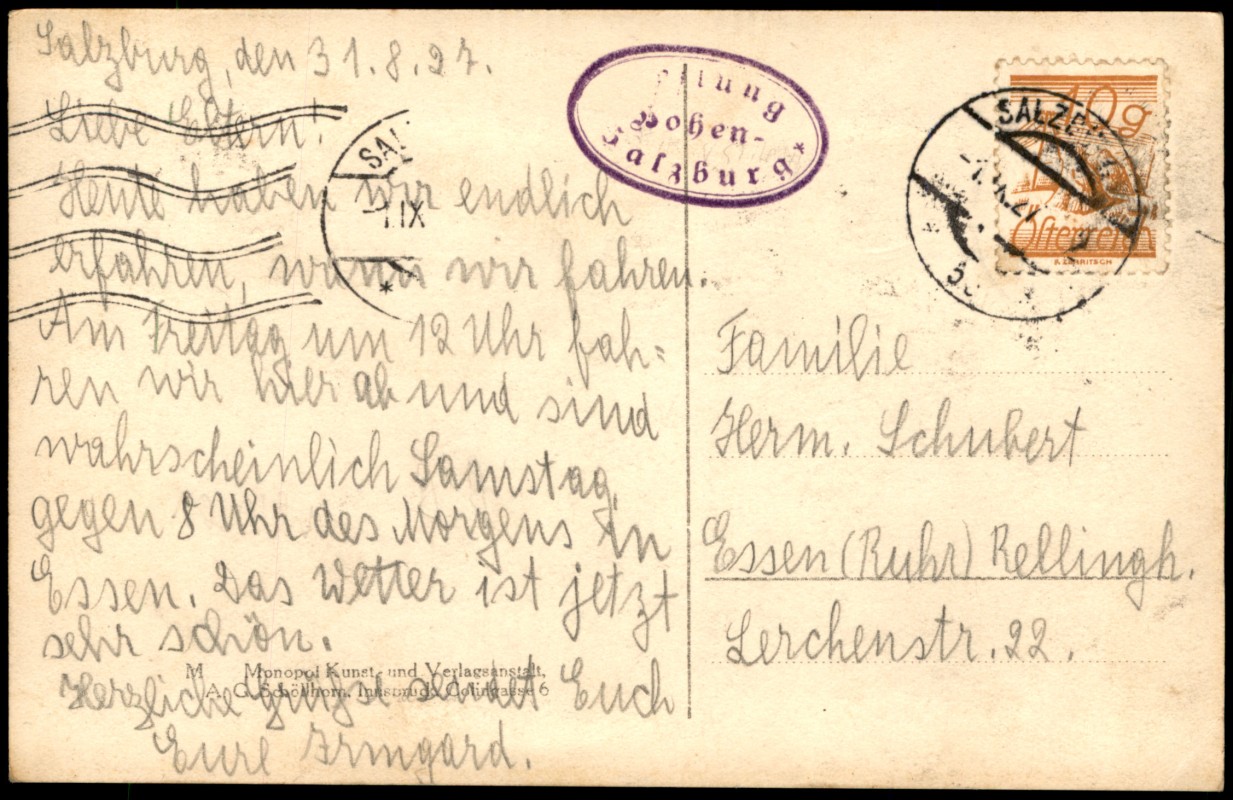 Salzburg, den 31.8.27.
Liebe Eltern!
Heute haben wir endlich
erfahren, wann wir fahren.
Am Freitag um 12 Uhr fah=
ren wir hier ab und sind
wahrscheinlich Samstag,
gegen 8 Uhr des Morgens in
Essen. Das Wetter ist jetzt
sehr schön.
Herzliche Grüße sendet Euch
Eure Irmgard.
M Monopol Kunst- und Verlagsanstalt,
A. G. Schöllhorn, Innsbruck, Colingasse 6
Hohen-
Salzburg *
10g
Österreich
SALZBURG
IX
*
Familie
Herm. Schubert
Essen (Ruhr) Rellingh.
Lerchenstr. 22.